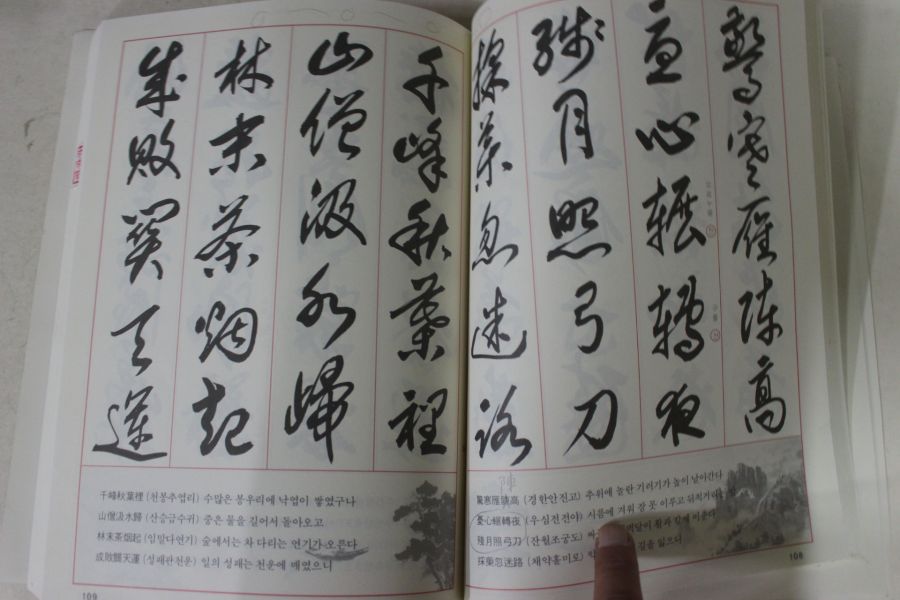 驚寒雁陳高
憂心輾轉夜
殘月照弓刀
採藥忽迷路
陣
驚寒雁陳高 (경한안진고) 추위에 놀란 기러기가 높이 날아간다
憂心輾轉夜 (우심전전야) 시름에 겨워 잠 못 이루고 뒤척거리는 밤
殘月照弓刀 (잔월조궁도) 활과 함께 비춘다
採藥忽迷路 (채약홀미로) 길을 잃으니
108
千峰秋葉裡
山僧汲水歸
林末茶烟起
成敗關天運
千峰秋葉裡 (천봉추엽리) 수많은 봉우리에 낙엽이 쌓였구나
山僧汲水歸 (산승급수귀) 중은 물을 길어서 돌아오고
林末茶烟起 (임말다연기) 숲에서는 차 다리는 연기가 오른다
成敗關天運 (성패관천운) 일의 성패는 천운에 매였으니
109